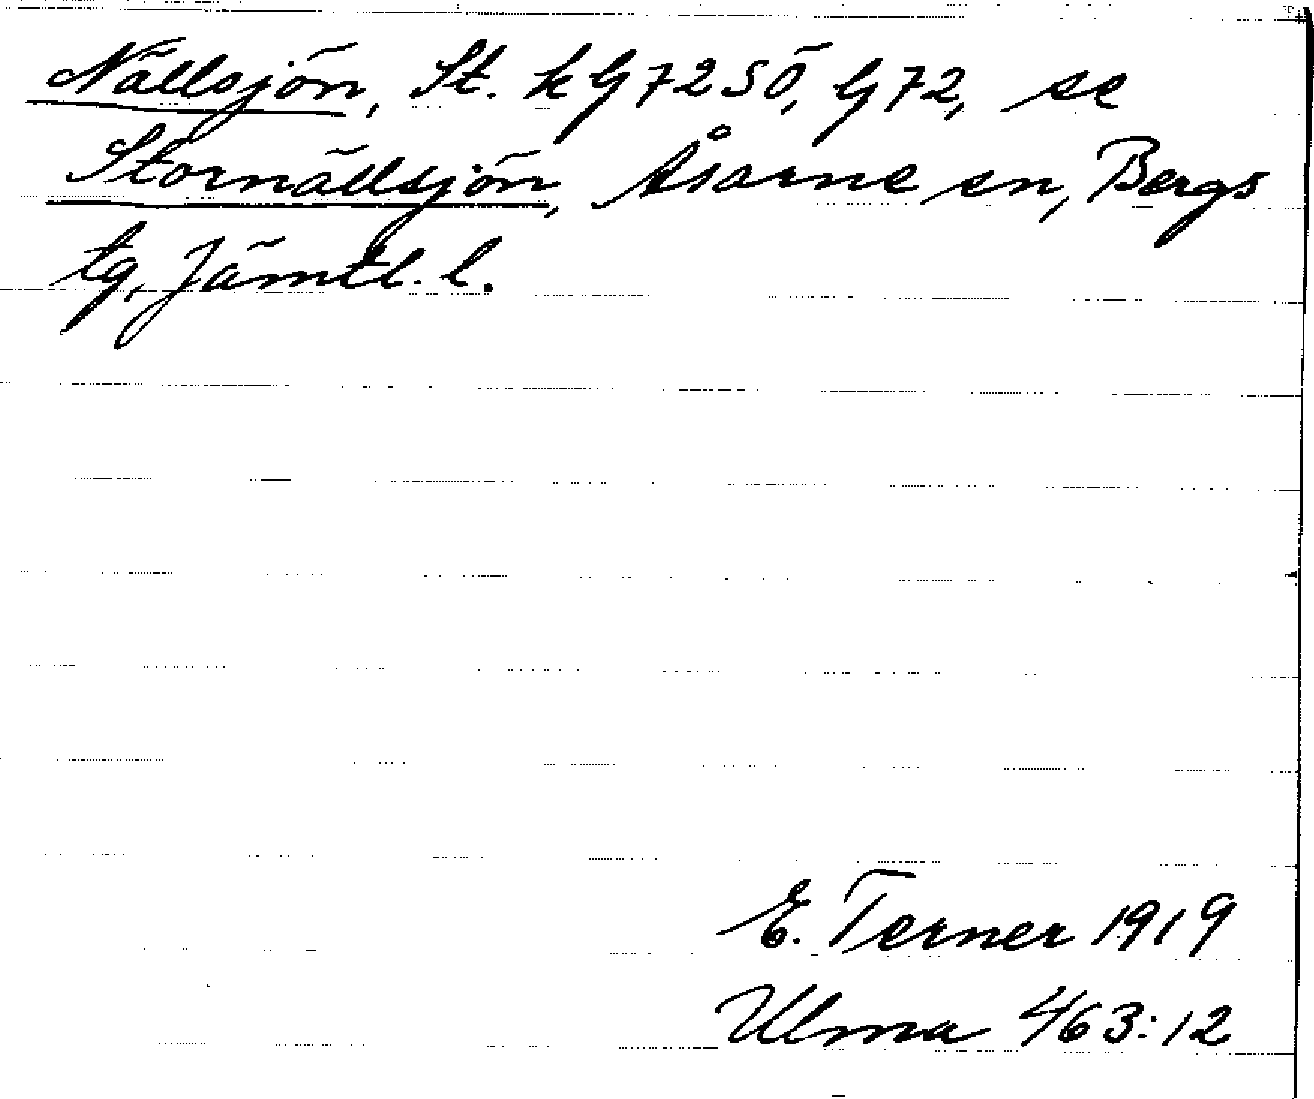 Nällsjön, St. kg 72 SÖ, G 72, se
Stornällsjön, Åsarne sn, Bergs
tg, Jämtl. l.
E. Terner 1919
Ulma 463:12